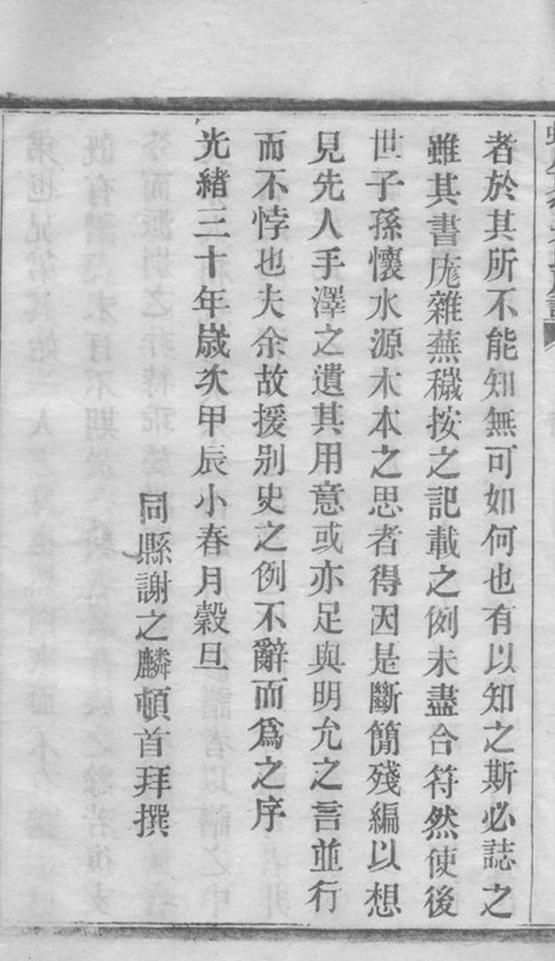 者於其所不能知無可如何也有以知之斯必誌之
雖其書庞雜蕪穢按之記載之例未盡合符然使後
世子孫懷水源木本之思者得因是斷簡殘編以想
見先人手澤之遺其用意或亦足與明允之言並行
而不悖也夫余故援别史之例不辭而爲之序
光緒三十年歲次甲辰小春月穀旦
同縣謝之麟頓首拜撰